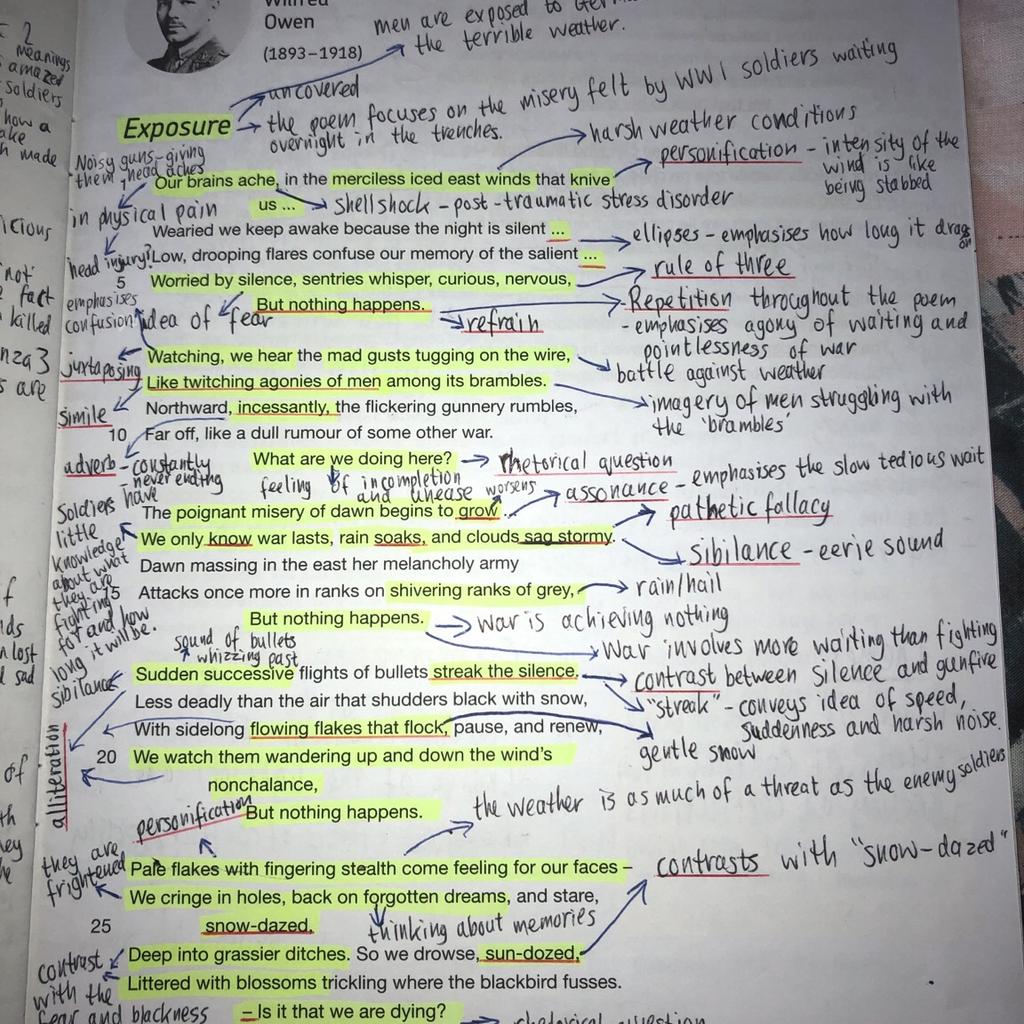 2
meanings
amazed
soldiers
how a
made
icious
not
fact
killed
nza 3
s are
f
lost
sad
of
Wilfred
Owen
(1893–1918)
men are exposed to
the terrible weather.
uncovered
Exposure
the poem focuses on the misery felt by WW1 soldiers waiting
overnight in the trenches.
harsh weather conditions
Noisy guns-giving
them head aches
personification - intensity of the
wind is like
being stabbed
Our brains ache, in the merciless iced east winds that knive
us ...
shellshock - post-traumatic stress disorder
in physical pain
Wearied we keep awake because the night is silent ...
ellipses - emphasises how long it drags
on
head injury?
Low, drooping flares confuse our memory of the salient ...
rule of three
5 Worried by silence, sentries whisper, curious, nervous,
emphasises
confusion
But nothing happens.
idea of fear
refrain
Repetition throughout the poem
- emphasises agony of waiting and
pointlessness of war
juxtaposing
Watching, we hear the mad gusts tugging on the wire,
battle against weather
Like twitching agonies of men among its brambles.
simile
Northward, incessantly, the flickering gunnery rumbles,
imagery of men struggling with
the 'brambles'
10 Far off, like a dull rumour of some other war.
adverb - constantly
- never ending
What are we doing here?
rhetorical question
feeling of incompletion
and unease
worsens
assonance - emphasises the slow tedious wait
Soldiers have
little
knowledge
about what
they are
fighting
for and how
long it will be.
The poignant misery of dawn begins to grow ...
pathetic fallacy
We only know war lasts, rain soaks, and clouds sag stormy.
sibilance - eerie sound
Dawn massing in the east her melancholy army
15 Attacks once more in ranks on shivering ranks of grey,
rain/hail
But nothing happens.
war is achieving nothing
War involves more waiting than fighting
sound of bullets
whizzing past
sibilance
Sudden successive flights of bullets streak the silence.
contrast between silence and gunfire
Less deadly than the air that shudders black with snow,
"streak" - conveys idea of speed,
suddenness and harsh noise.
With sidelong flowing flakes that flock, pause, and renew,
gentle snow
alliteration
20 We watch them wandering up and down the wind's
nonchalance,
personification
But nothing happens.
the weather is as much of a threat as the enemy soldiers
they are
frightened
Pale flakes with fingering stealth come feeling for our faces –
contrasts with "snow-dazed"
We cringe in holes, back on forgotten dreams, and stare,
25 snow-dazed,
thinking about memories
Deep into grassier ditches. So we drowse, sun-dozed,
contrast
with the
fear and blackness
Littered with blossoms trickling where the blackbird fusses.
– Is it that we are dying?
rhetorical question